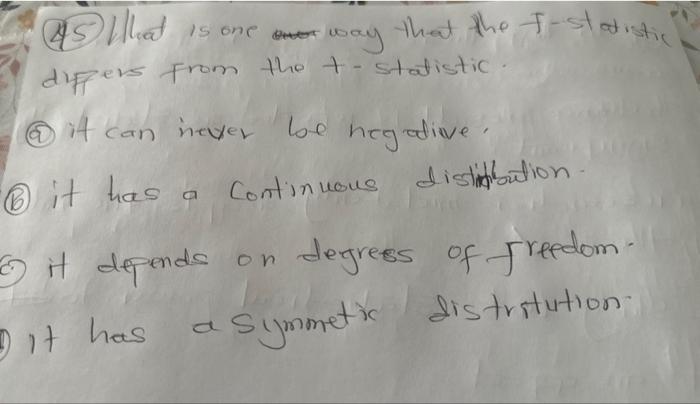 45 What is one way that the F-statistic
differs from the t-statistic.
a it can never be negative.
b it has a Continuous distribution.
c it depends on degrees of freedom.
d it has a symmetic distrtution.